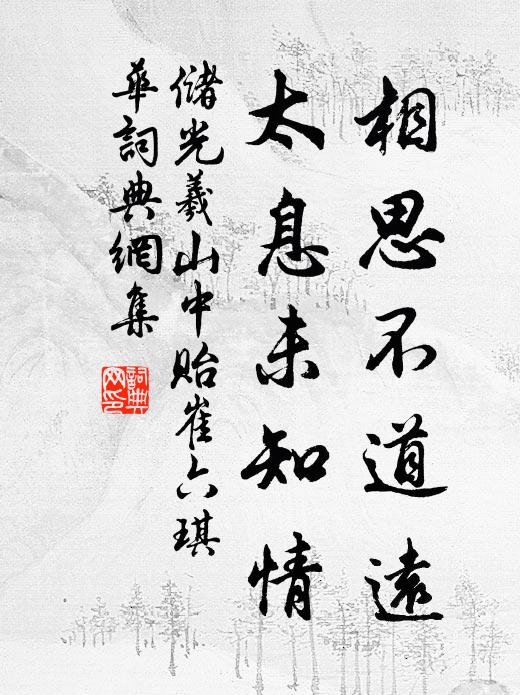 相思不道遠
太息未知情
儲光羲山中貽崔六琪
華詞典網集
詞典
网印